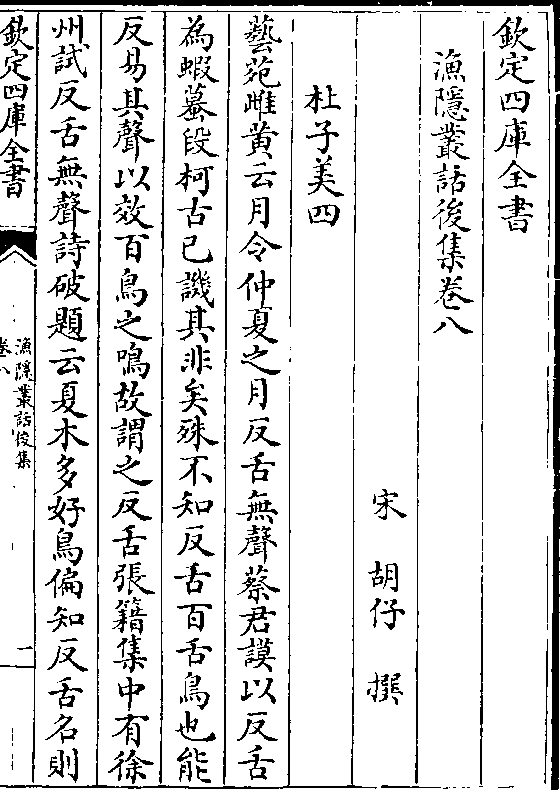 欽定四庫全書
漁隱叢話後集卷八
宋 胡仔 撰
杜子美四
藝苑雌黄云月令仲夏之月反舌無聲蔡君謨以反舌
為蝦蟇段柯古已譏其非矣殊不知反舌百舌鳥也能
反易其聲以效百鳥之鳴故謂之反舌張籍集中有徐
州試反舌無聲詩破題云夏木多好鳥偏知反舌名則
欽定四庫全書
漁隱叢話後集
卷八
一